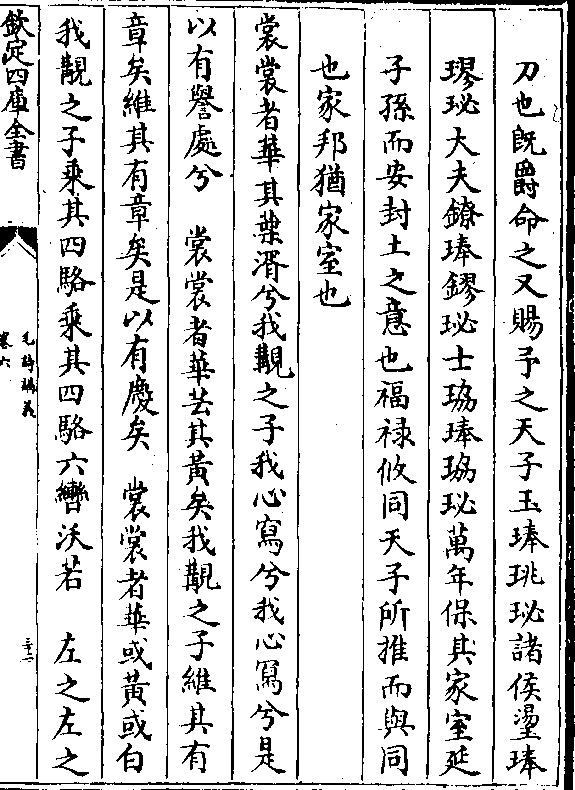 刀也既爵命之又賜予之天子玉琫珧珌諸侯璗琫
璆珌大夫鐐琫鏐珌士珕琫珕珌萬年保其家室延
子孫而安封土之意也福禄攸同天子所推而與同
也家邦猶家室也
裳裳者華其葉湑兮我覯之子我心寫兮我心寫兮是
以有譽處兮　裳裳者華芸其黄矣我覯之子維其有
章矣維其有章矣是以有慶矣　裳裳者華或黄或白
我覯之子乘其四駱乘其四駱六轡沃若　左之左之
欽定四庫全書
毛詩講義
卷六
三十二